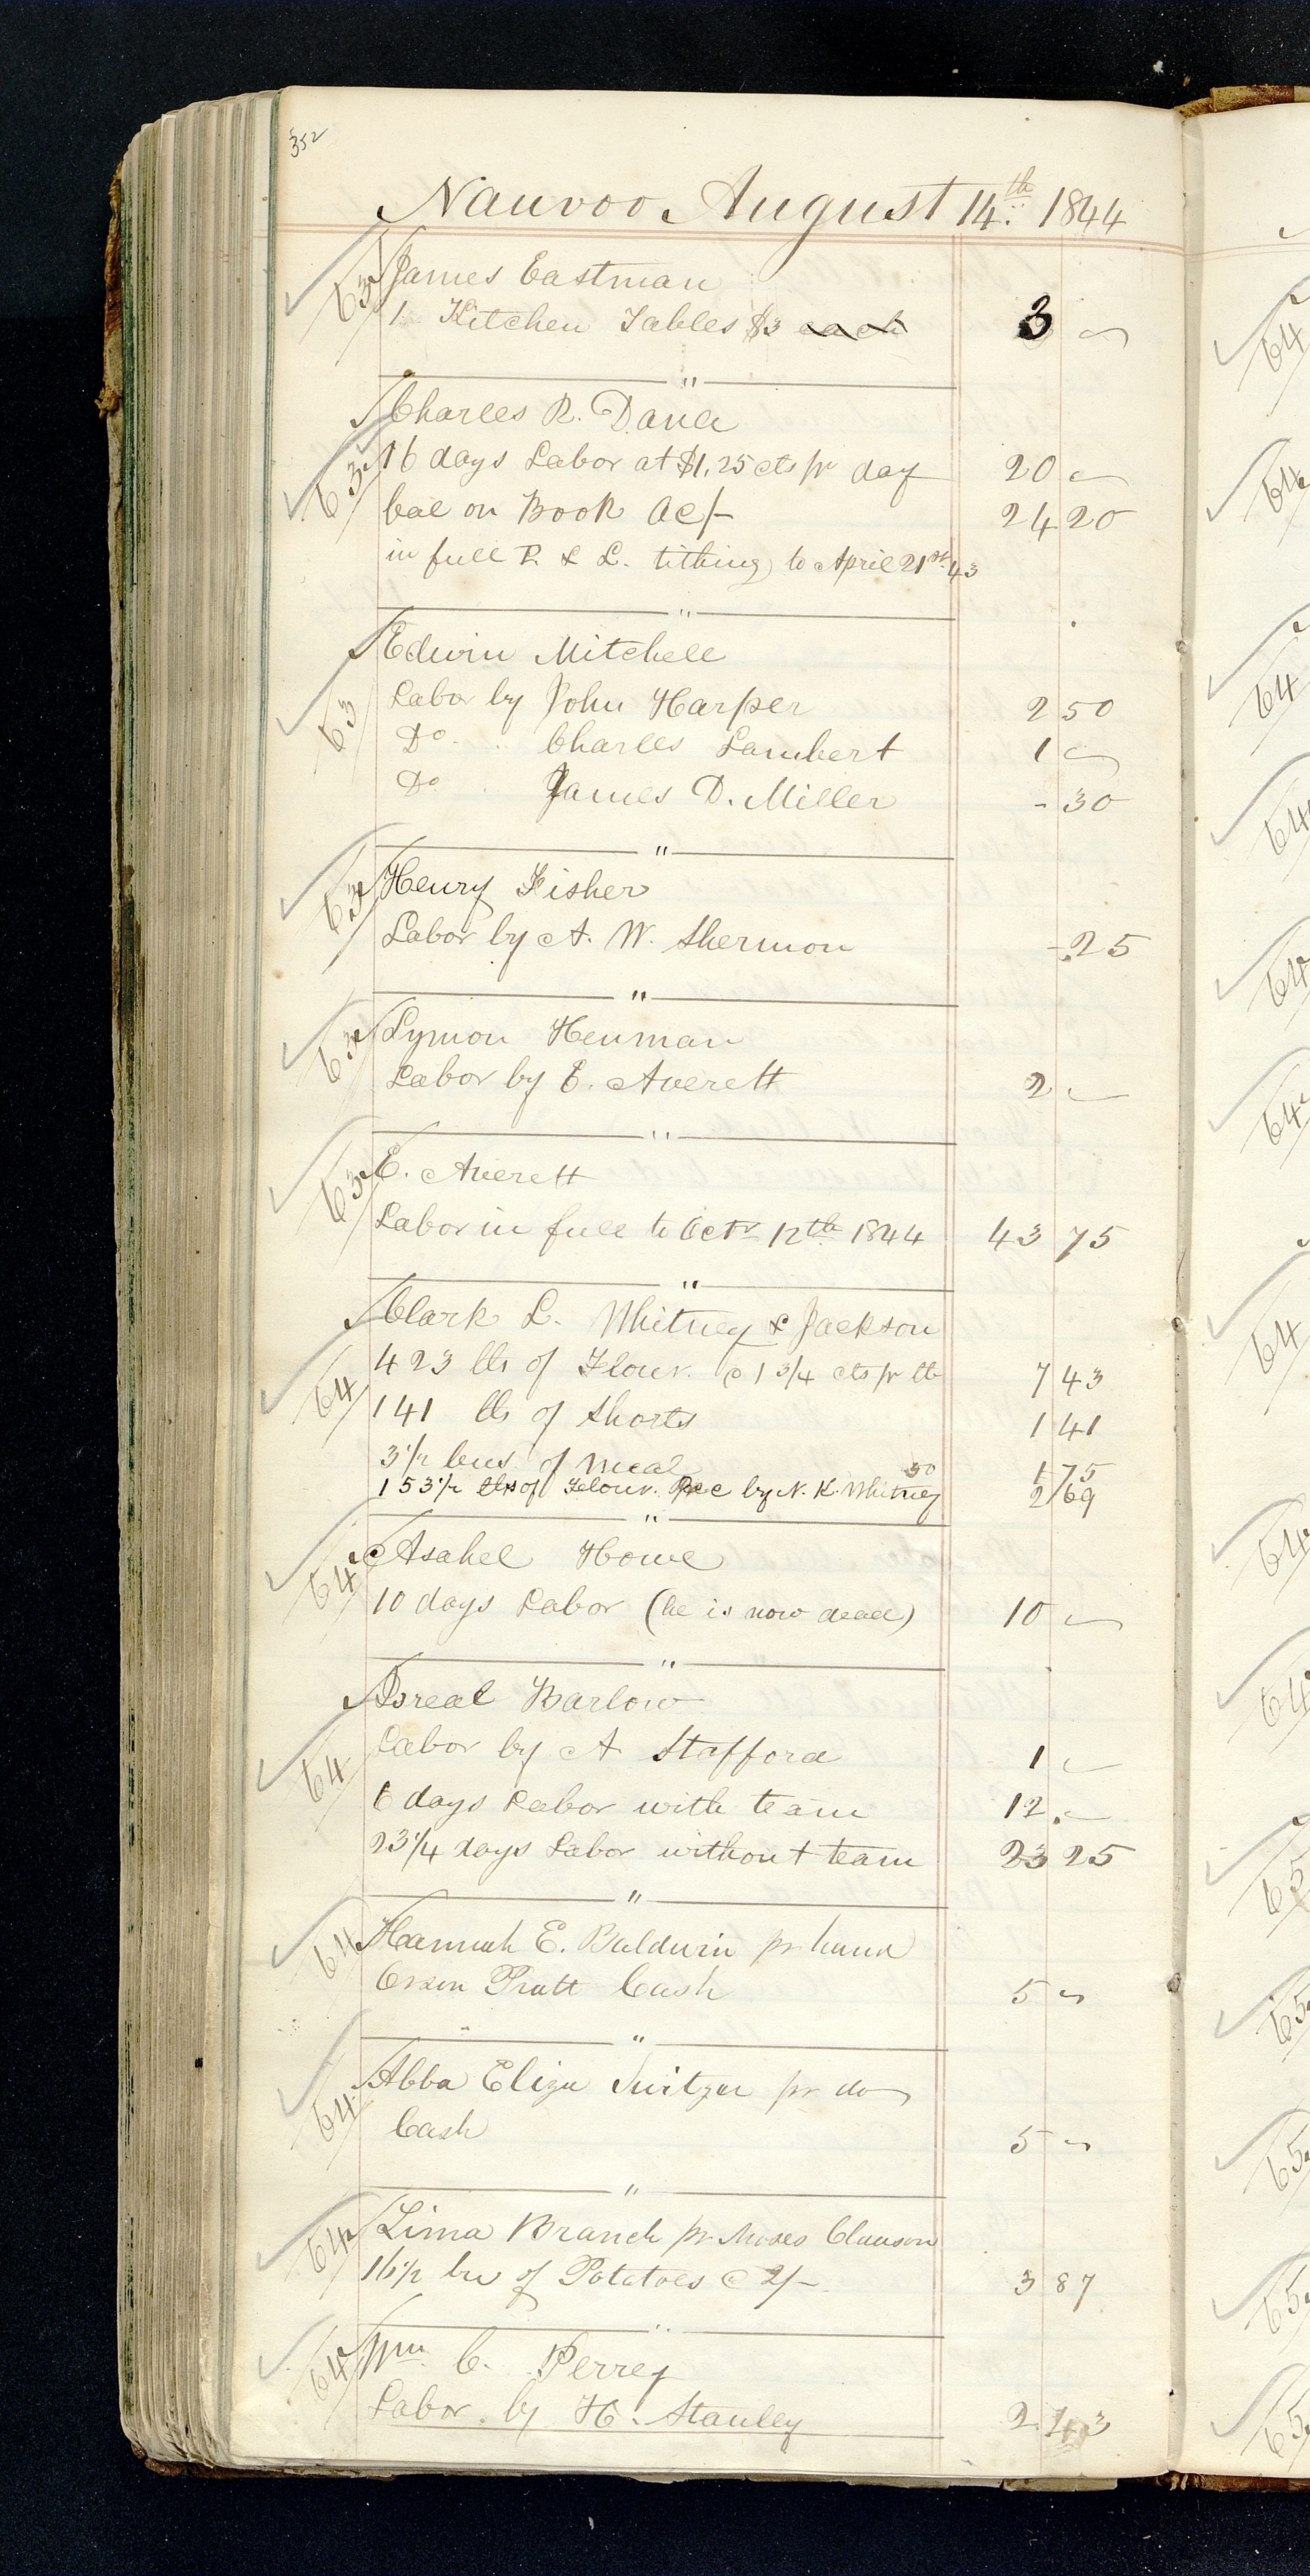 352
Nauvoo August 14th 1844
63 James Eastman
1 Kitchen Tables $3 each 3 "
Charles R. Dana
63 16 days Labor at $1,25 cts pr day 20 "
bal on Book Ac/- 24 20
in full P. & L. tithing to April 21st 43
"
Edwin Mitchell
63 Labor by John Harper 2 50
Do. " Charles Lambert 1 "
Do " James D. Miller - 30
"
63 Henry Fisher
Labor by A. W. Shermon - 25
"
63 Lymon Henman
Labor by E. Averett 2 "
"
63 E. Averett
Labor in full to Octr 12th 1844 43 75
"
Clark L. Whitney & Jackson
64 423 lbs of Flour @ 1 3/4 cts pr lb 7 43
141 lbs of Shorts 1 41
3 1/2 bus of Meal 50 1 75
153 1/2 lbs of Flour. Rec by N. K. Whitney 2 69
"
64 Asahel Howe
10 days Labor (he is now dead) 10 "
"
Isreal Barlow
64 Labor by A Stafford 1 "
6 days Labor with team 12 "
23 1/4 days Labor without team 23 25
"
64 Hannah E. Baldwin pr hand
Orson Pratt Cash 5 "
"
64 Abba Eliza Switzer pr do
Cash 5 "
"
64 Lima Branch pr Moses Clawson
16 1/2 bu of Potatoes @ 2/- 3 87
"
64 Wm C. Perrey
Labor by H. Stanley 2